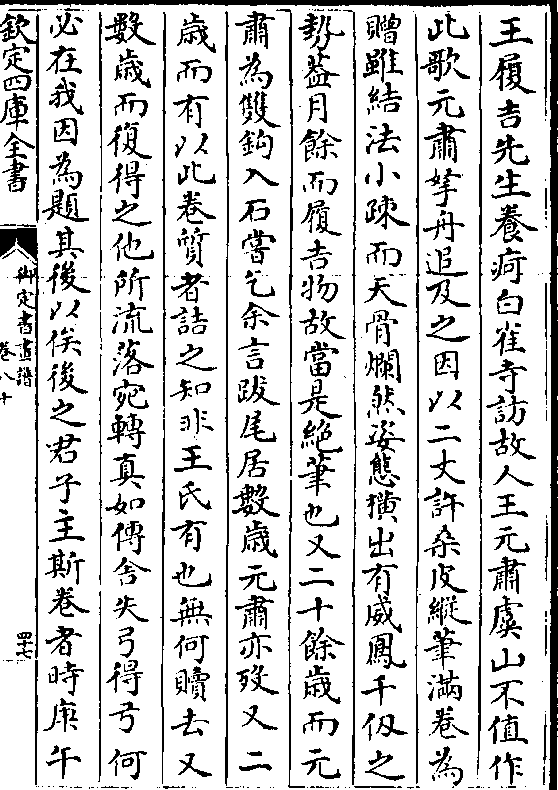 王履吉先生養疴白雀寺訪故人王元肅虞山不值作
此歌元肅拏舟追及之因以二丈許桑皮縱筆滿卷為
贈雖結法小疎而天骨爛然姿態橫出有威鳳千仭之
勢葢月餘而履吉物故當是絶筆也又二十餘歳而元
肅為雙鈎入石嘗乞余言跋尾居數歳元肅亦歿又二
歳而有以此卷質者詰之知非王氏有也無何贖去又
數歳而復得之他所流落宛轉真如傳舍失弓得弓何
必在我因為題其後以俟後之君子主斯卷者時庚午
欽定四庫全書
御定書畫譜
卷八十
四七